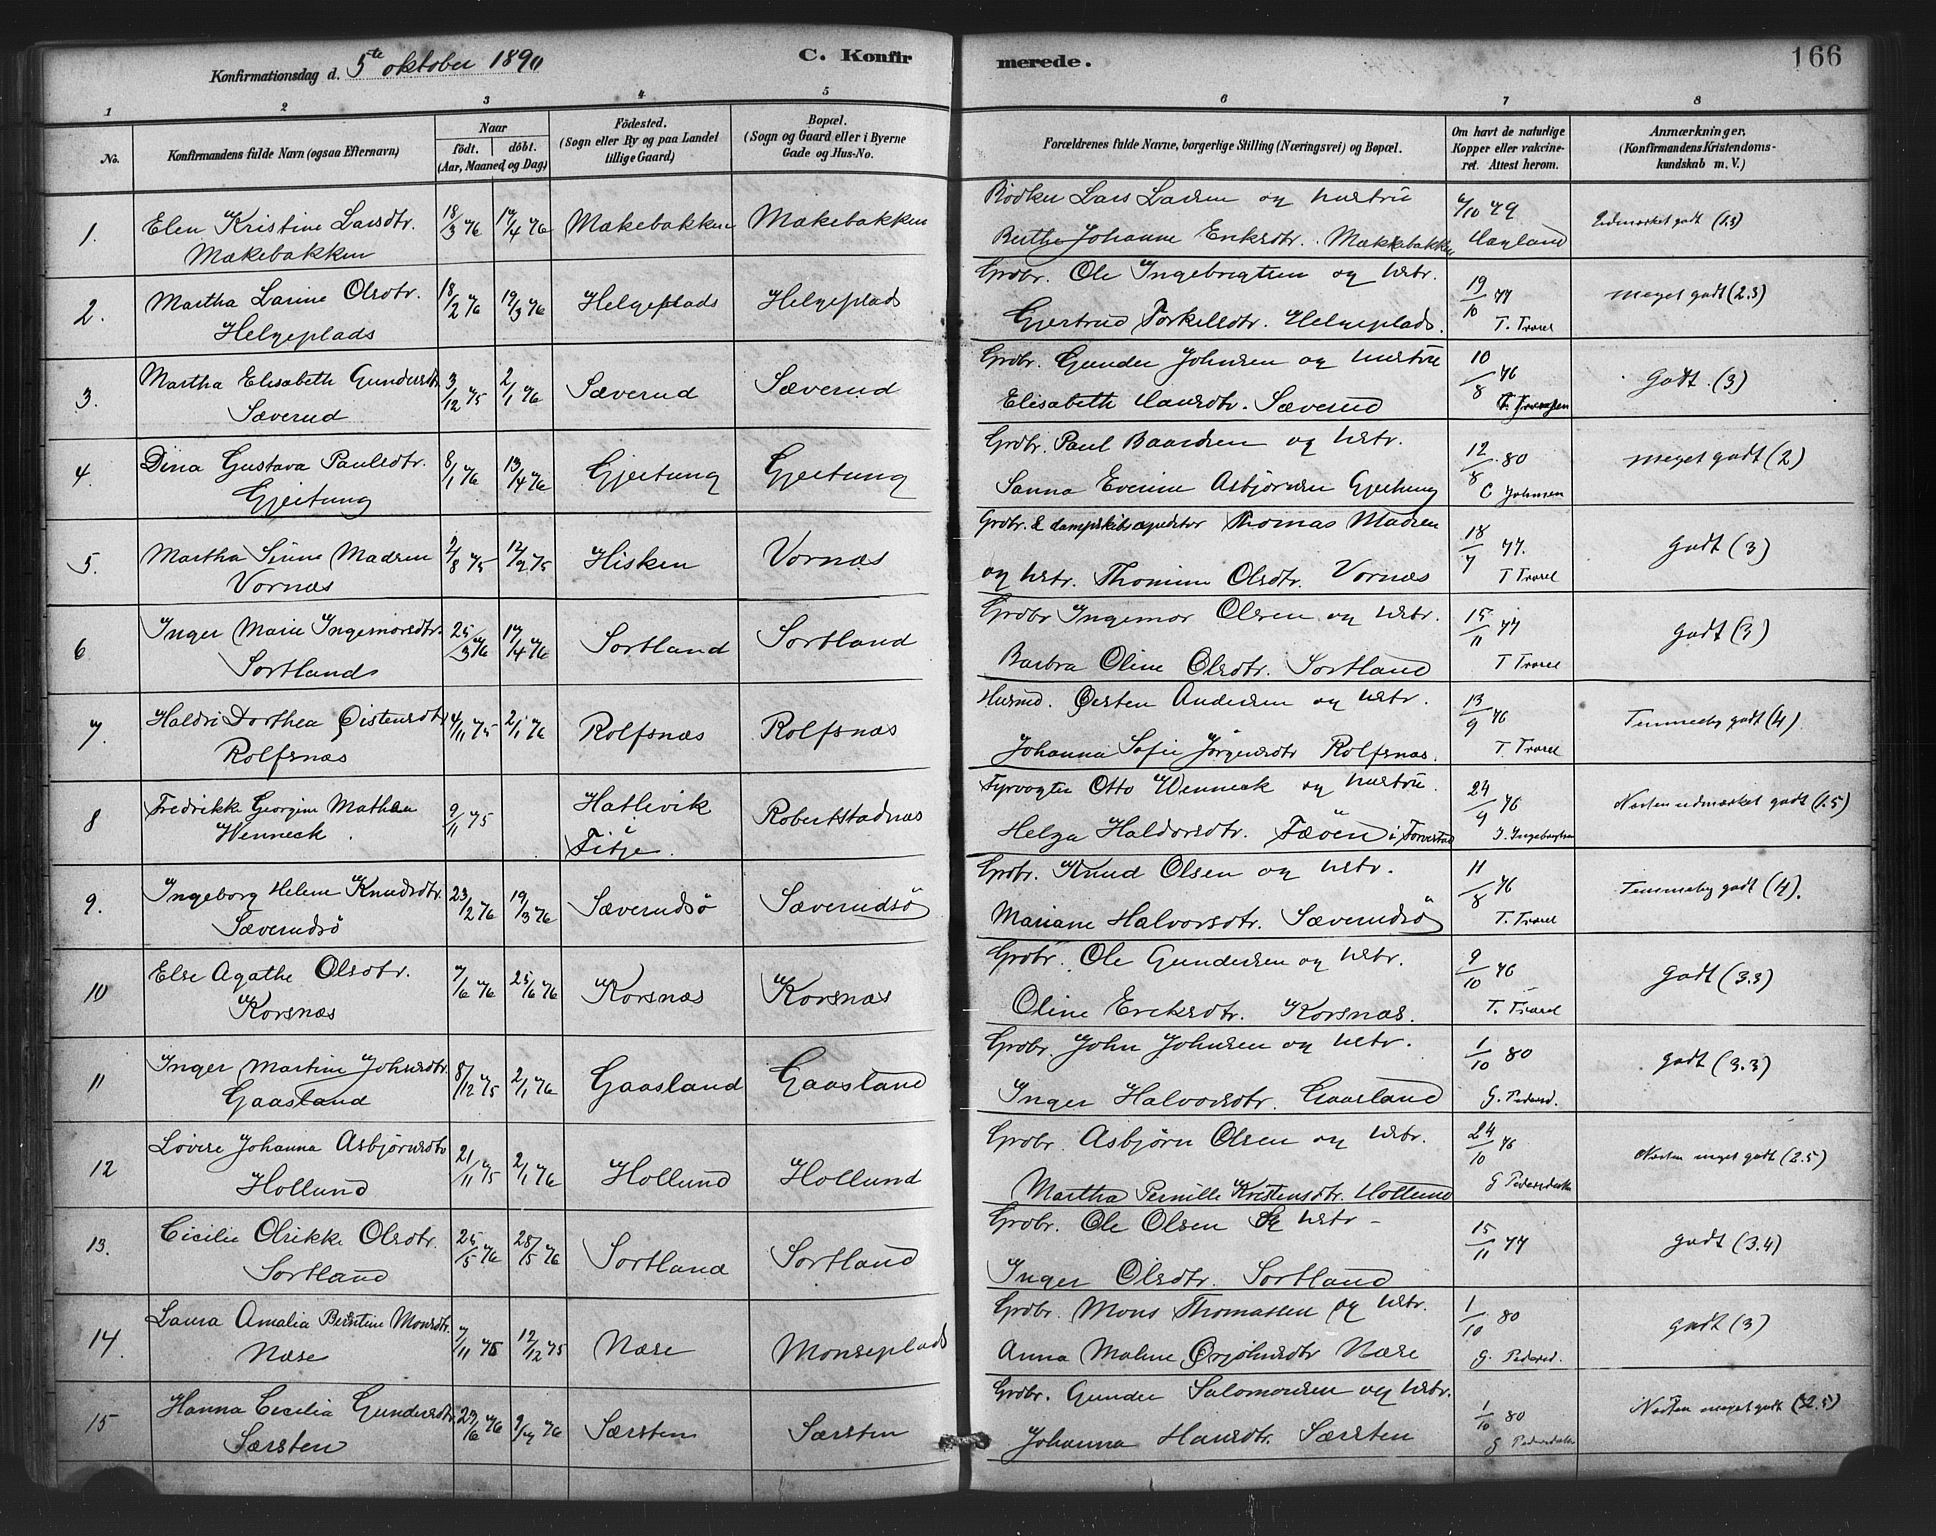 Konfirmationsdag d. 5te oktober 1890
C. Konfirmerede.
166
1 2 3 4 5 6 7 8
No.
Konfirmandens fulde Navn (ogsaa Efternavn)
Naar
födt. döbt.
(Aar, Maaned og Dag)
Födested.
(Sogn eller By og paa Landet
tillige Gaard)
Bopæl.
(Sogn og Gaard eller i Byerne
Gade og Hus-No.
Forældrenes fulde Navne, borgerlige Stilling (Næringsvei) og Bopæl.
Om havt de naturlige
Kopper eller vakcine-
ret. Attest herom.
Anmærkninger,
(Konfirmandens Kristendoms-
kundskab m. V.)
1. Elen Kristine Larsdtr.
Mækebakken
18/3 76 17/4 76 Mækebakken Mækebakken
Bödker Lars Larsen og hustru
Berthe Johanne Eriksdtr. Mækkebakken
6/10 79
Udmærket godt (1.5)
2. Martha Larine Olsdtr.
Helgeplads
18/2 76 19/3 76 Helgeplads Helgeplads
Grdbr. Ole Ingebrigtsen og hstr.
Gjertrud Torkelsdtr. Helgeplads.
19/10 77
meget godt (2.3)
3. Martha Elisabeth Gundersdtr
Sæverud
3/12 75 2/1 76 Sæverud Sæverud
Grdbr. Gunder Johnsen og hustru
Elisabeth Hansdtr. Sæverud
10/8 76
Godt. (3)
4. Dina Gustava Paulsdtr.
Gjeitung
8/1 76 13/4 76 Gjeitung Gjeitung
Grdbr. Paul Baardsen og hstr.
Sanna Evenine Asbjörnsen Gjeitung
12/8 80
C Johnsen
meget godt (2)
5. Martha Sinne Madsen
Vornæs
2/8 75 12/9 75 Hisken Vornæs
Grdbr. & dampskibsexpeditör Thomas Madsen
og hstr. Thomine Olsdtr. Vornæs
18/7 77.
godt (3)
6 Inger Marie Ingemorsdtr.
Sortland
25/3 76 17/4 76 Sortland Sortland
Grdbr Ingemor Olsen og hstr.
Barbra Oline Olsdtr. Sortland
15/11 77
godt (3)
7. Haldri Dorthea Östensdtr
Rolfsnæs
4/11 75 2/1 76 Rolfsnæs Rolfsnæs
Husmd. Östen Andersen og hstr.
Johanna Sofie Jörgensdtr Rolfsnæs.
13/9 76
Temmelig godt (4).
8 Fredrikke Georgine Mathea
Wenneck.
9/11 75 Hatlevik
Fitje. Robertstadnæs
Fyrvogter Otto Wenneck og hustru.
Helga Haldorsdtr. Fæöen i Torvestad
24/9 76
Næsten udmærket godt (1.5)
9. Ingeborg Helene Knudsdtr.
Sæverudsö
23/2 76 19/3 76 Sæverudsö Sæverudsö
Grdbr. Knud Olsen og hstr.
Mariane Halvorsdtr. Sæverudsö
11/8 76
Temmelig godt (4).
10 Else Agathe Olsdtr.
Korsnæs
7/6 76 25/6 76 Korsnæs Korsnæs
Grdbr. Ole Gundersen og hstr.
Oline Eriksdtr. Korsnæs.
9/10 76
godt (3.3)
11 Inger Martine Johnsdtr.
Gaasland
8/12 75 2/1 76 Gaasland Gaasland
Grdbr. John Johnsen og hstr.
Inger Halvorsdtr. Gaasland
1/10 80
G. Pedersd.
godt (3.3)
12 Lovise Johanna Asbjörnsdtr
Hollund
21/11 75 2/1 76 Hollund Hollund
Grdbr. Asbjörn Olsen og hstr.
Martha Pernille Kristensdtr. Hollund
24/10 76
G Pedersdatter
Næsten meget godt (2.5)
13. Cicilie Olrikke Olsdtr.
Sortland
25/5 76 28/5 76 Sortland Sortland
Grdbr. Ole Olsen & hstr
Inger Olsdtr. Sortland
15/11 77
godt (3.4)
14. Laura Amalia Berntine Monsdtr.
Næse
7/11 75 12/12 75 Næse Monseplads
Grdbr. Mons Thomassen og hstr.
Anna Maline Örjohnsdtr Næse
1/10 80
G. Pedersd.
godt (3)
15 Hanna Cecilia Gundersdtr.
Særsten
29/6 76 9/7 76 Særsten Særsten
Grdbr. Gunder Salomonsen og hstr.
Johanna Hansdtr. Særsten
1/10 80
G Pedersdatter
Næsten meget godt (2.5)